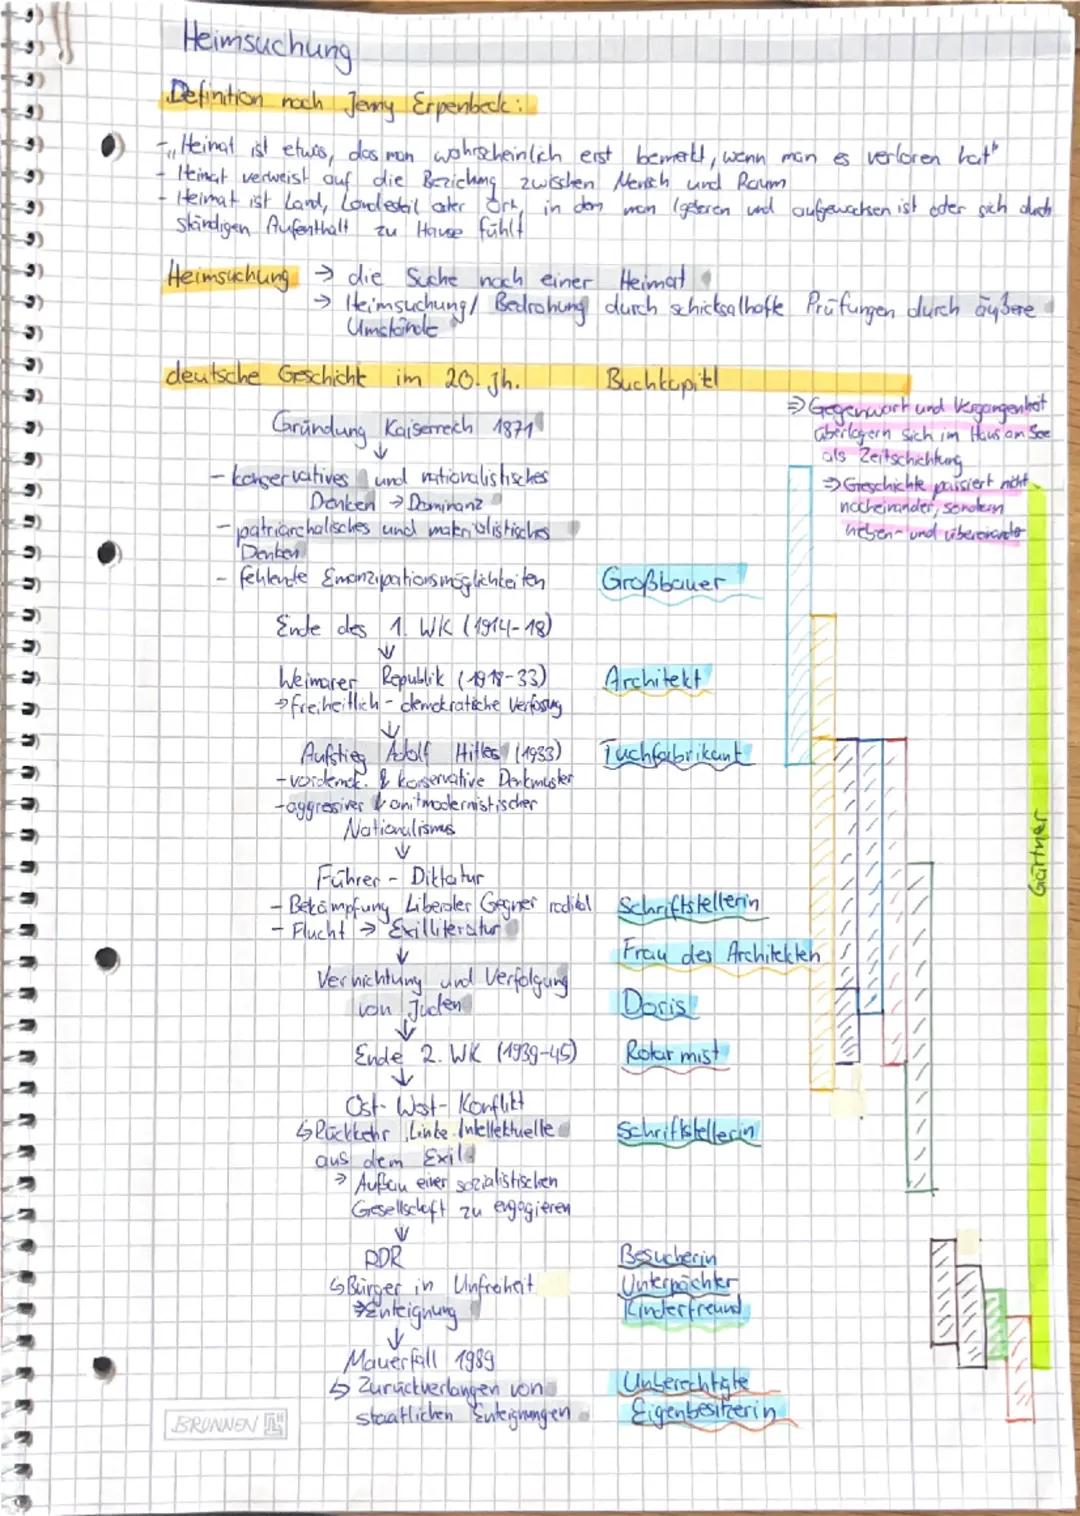 Heimsuchung
Definition nach Jenny Erpenbeck:
- „Heimat ist etwas, das man wahrscheinlich erst bemerkt, wenn man es verloren hat"
- Heimat verweist auf die Beziehung zwischen Mensch und Raum
- Heimat ist Land, Landesteil oder Ort, in dem man (geboren und aufgewachsen ist oder sich durch
ständigen Aufenthalt zu Hause fühlt
Heimsuchung → die Suche nach einer Heimat
→ Heimsuchung/ Bedrohung durch schicksalhafte Prüfungen durch äußere
Umstände
deutsche Geschichte im 20. Jh. Buchkapitl
⇒ Gegenwart und Vergangenheit
überlagern sich im Haus am See
als Zeitschichtung
⇒ Geschichte passiert nicht
nacheinander, sondern
neben- und übereinander
Gründung Kaiserreich 1871
↓
- konservatives und nationalistisches
Denken → Dominanz
- patriarchalisches und materialistisches
Denken
- fehlende Emanzipationsmöglichkeiten Großbauer
Ende des 1. WK (1914-18)
↓
Weimarer Republik (1918-33) Architekt
→ freiheitlich - demokratische Verfassug
↓
Aufstieg Adolf Hitles (1933) Tuchfabrikant
- vordemok. & konservative Denkmuster
- aggressiver & anitmodernistischer
Nationalismus
↓
Führer - Diktatur
- Bekämpfung Liberaler Gegner radikal Schriftstellerin
- Flucht → Exilliteratur
↓ Frau des Architekten
Vernichtung und Verfolgung
von Juden Doris
↓
Ende 2. WK (1939-45) Rotarmist
↓
Ost- West- Konflikt
↳ Rückkehr Linke Intellektuelle Schriftstellerin
aus dem Exil
→ Aufbau einer sozialistischen
Gesellschaft zu engagieren
↓
DDR Besucherin
↳ Bürger in Unfreiheit Unterpächter
→ Enteignung Kinderfreund
↓
Mauerfall 1989
↳ Zurückverlangen von Unberechtigte
staatlichen Enteignungen Eigenbesitzerin
Gärtner
BRUNNEN